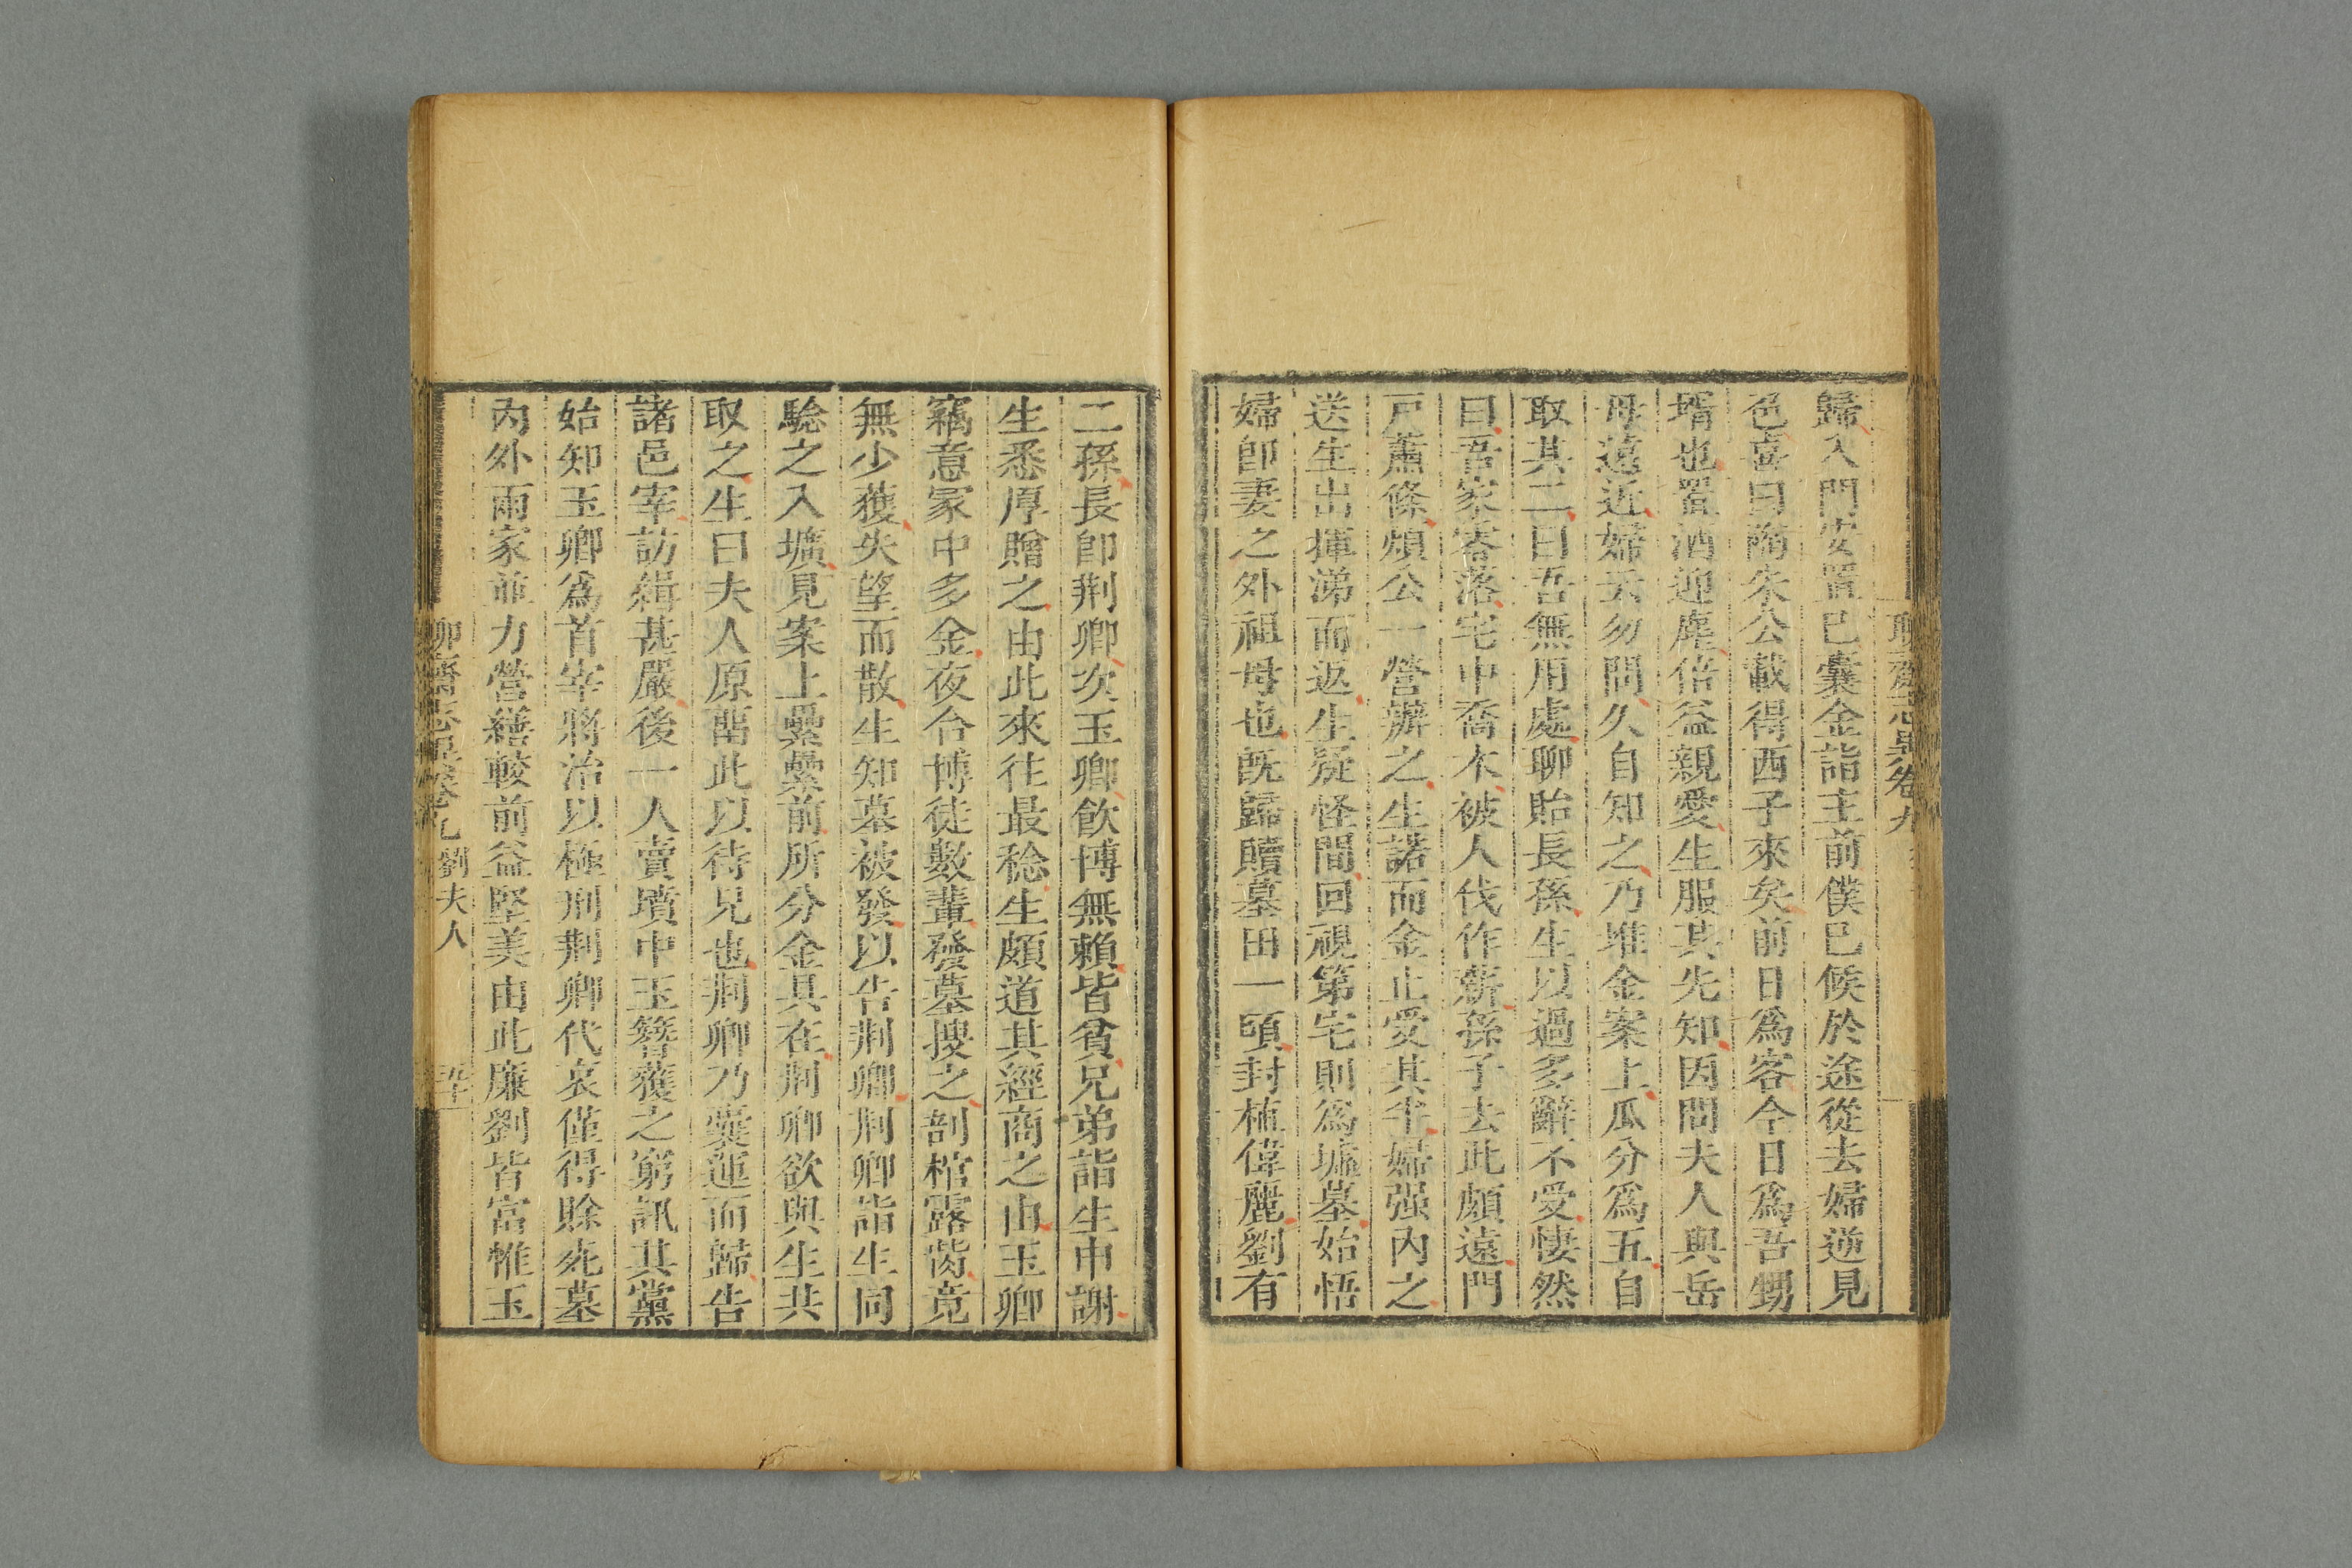 歸入門安置已囊金詣主前僕已候於途從去婦逆見
色喜曰陶朱公載得西子來矣前日爲客今日爲吾甥
壻也置酒迎塵倍益親愛生服其先知因問夫人與岳
母遠近婦云勿問久自知之乃堆金案上瓜分爲五自
取其二曰吾無用處聊貽長孫生以過多辭不受悽然
曰吾家零落宅中喬木被人伐作薪孫子去此頗遠門
戸蕭條煩公一營辦之生諾而金止受其半婦强內之
送生出揮涕而返生疑怪間回視第宅則爲墟墓始悟
婦卽妻之外祖母也旣歸贖墓田一頃封植偉麗劉有
二孫長卽荆卿次玉卿飮博無賴皆貧兄弟詣生申謝
生悉厚贈之由此來往最稔生頗道其經商之由玉卿
竊意冢中多金夜合博徒數輩發墓搜之剖棺露胔竟
無少獲失望而散生知墓被發以告荆卿荆卿詣生同
驗之入壙見案上纍纍前所分金具在荆卿欲與生共
取之生曰夫人原留此以待兄也荆卿乃囊運而歸告
諸邑宰訪緝甚嚴後一人賣墳中玉簪獲之窮訊其黨
始知玉卿爲首宰將治以極刑荆卿代哀僅得賒死墓
內外兩家並力營繕較前益堅美由此廉劉皆富惟玉
聊齋志異卷九 劉夫人